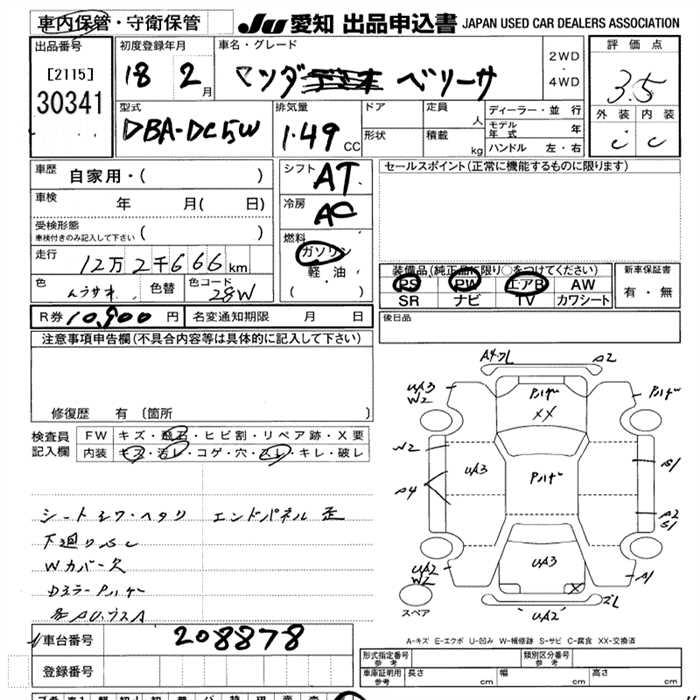 車内保管・守衛保管
JU 愛知 出品申込書 JAPAN USED CAR DEALERS ASSOCIATION
出品番号
[2115]
30341
初度登録年月
18 2月
車名・グレード
マツダ ベリーサ
2WD
・
4WD
評価点
3.5
外装 内装
C C
型式
DBA-DC5W
排気量
1.49 CC
ドア
形状
定員 人
積載 kg
ディーラー・並行
モデル年式 年
ハンドル 左・右
車歴
自家用・( )
車検 年 月( 日)
受検形態
車検付きのみ記入して下さい ( )
走行
12万2千666km
色
ムラサキ
色替
色コード
28W
シフト
AT
冷房
AC
燃料
ガソリン
軽・油
・
( )
セールスポイント(正常に機能するものに限ります)
装備品(純正品に限り○をつけてください)
PS PW エアB AW
SR ナビ TV カワシート
新車保証書
有・無
R券 10,900 円
名変通知期限 月 日
後日品
注意事項申告欄(不具合内容等は具体的に記入して下さい)
修復歴 有 〔箇所 〕
検査員
記入欄
FW キズ・飛石・ヒビ割・リペア跡・X要
内装 キズ・汚レ・コゲ・穴・スレ・キレ・破レ
シートシワ・ヘタリ エンドパネル歪
下廻りSC
Wカバー欠
Dミラー Pハゲ
車台番号
208878
登録番号
A4フL
A2
UA3
W2
Pハゲ
XX
Pハゲ
W2
UA3
Pハゲ
S1
A4
A2
S1
UA2
W2
UA3
X
A1
スペア
UA2
A-キズ E-エクボ U-凹み W-補修跡 S-サビ C-腐食 XX-交換済
形式指定番号
参考
類別区分番号
参考
車庫証明用
参考
長さ cm
幅 cm
高さ cm